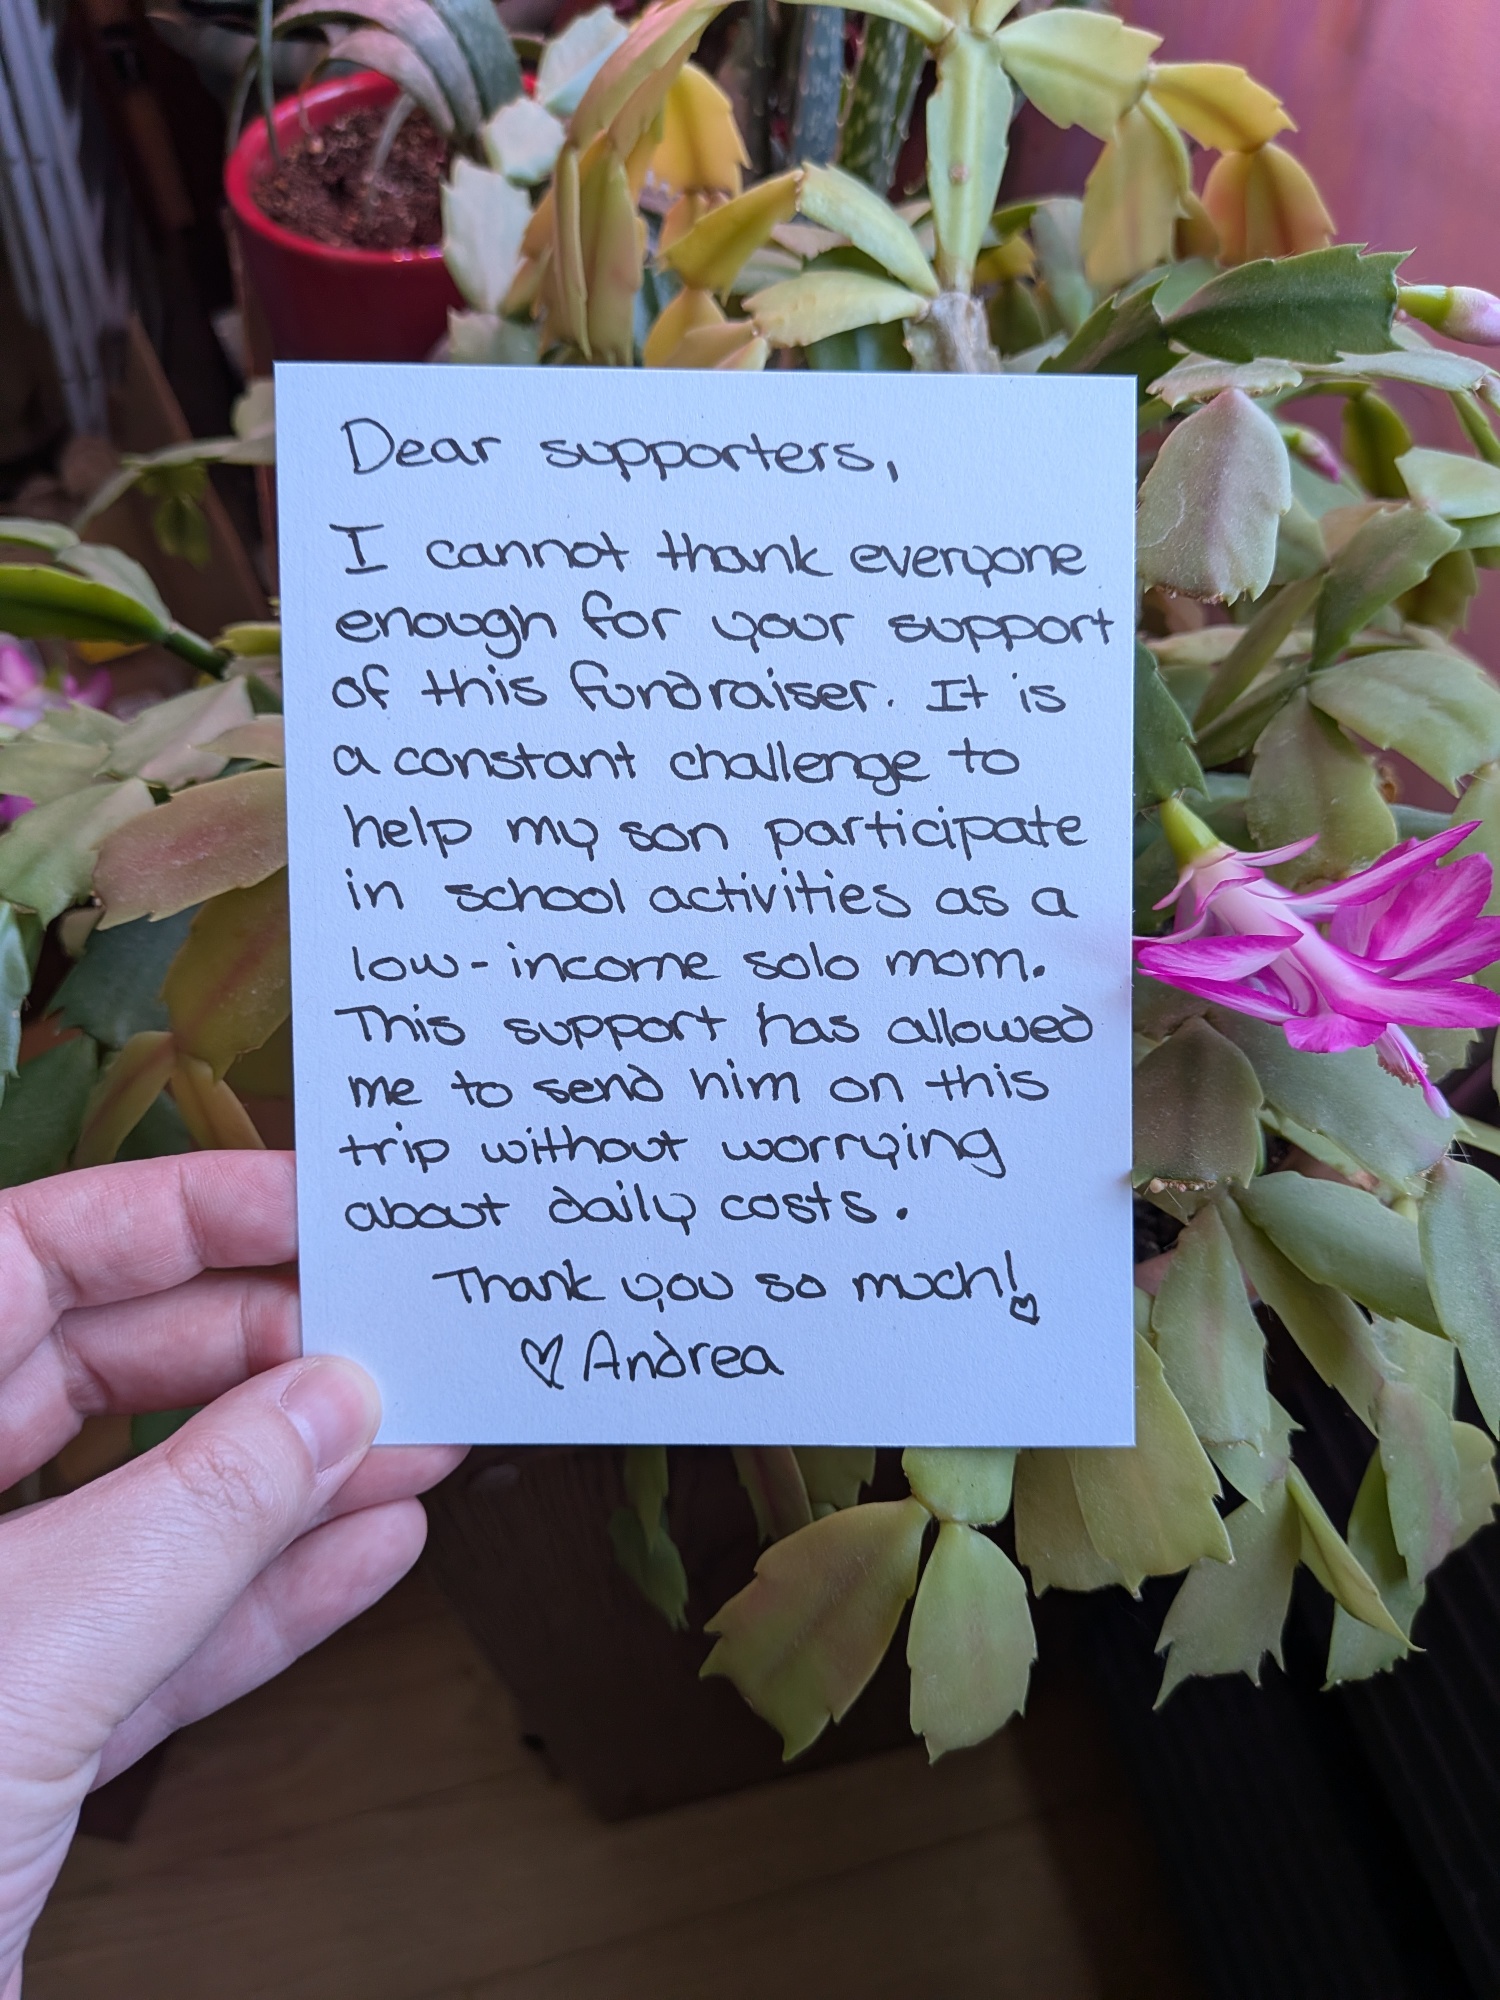 Dear supporters,
I cannot thank everyone
enough for your support
of this fundraiser. It is
a constant challenge to
help my son participate
in school activities as a
low-income solo mom.
This support has allowed
me to send him on this
trip without worrying
about daily costs.
Thank you so much!
♡ Andrea